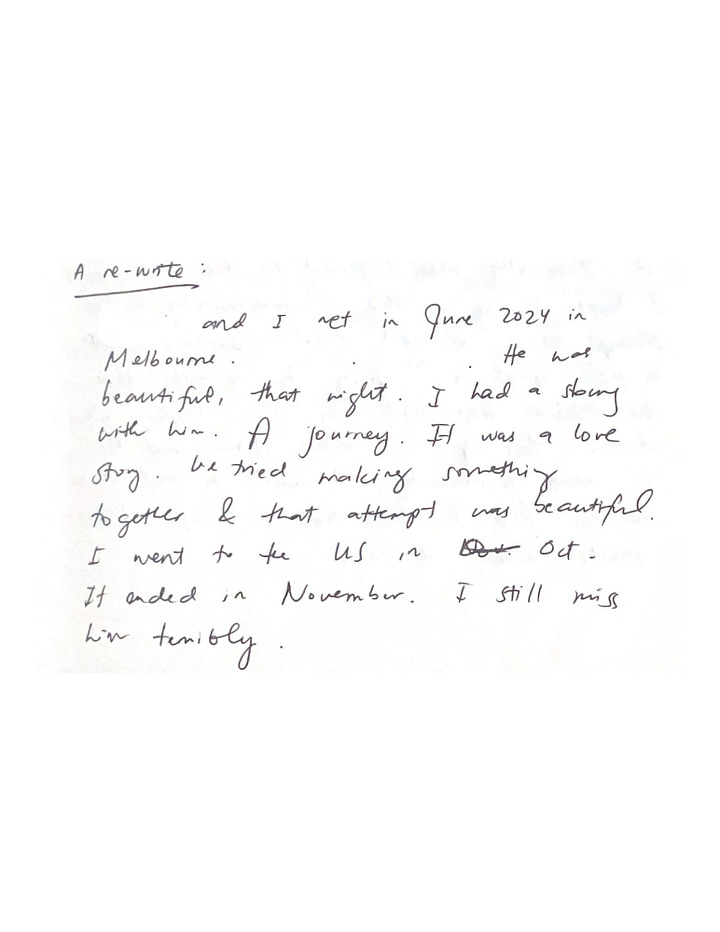 A re-write :
and I met in June 2024 in
Melbourne . He was
beautiful, that night. I had a story
with him. A journey. It was a love
story. We tried making something
together & that attempt was beautiful.
I went to the US in Oct.
It ended in November. I still miss
him terribly .